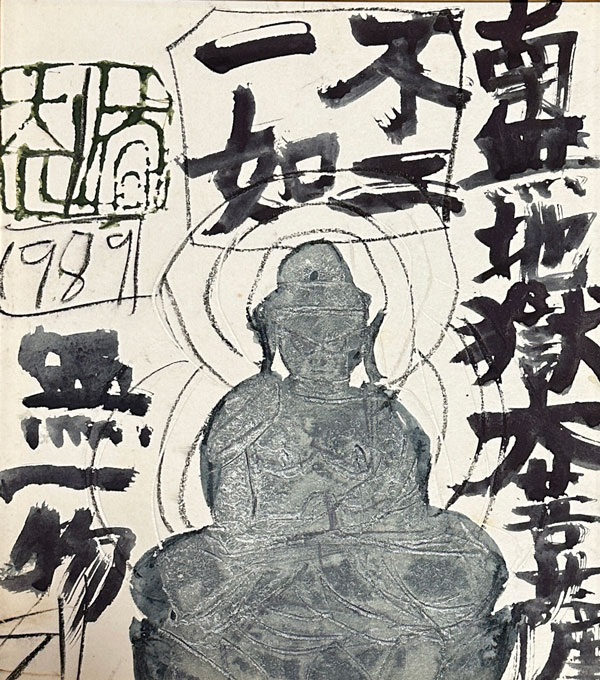 南無地獄大菩薩
不二
一如
1989
無一物